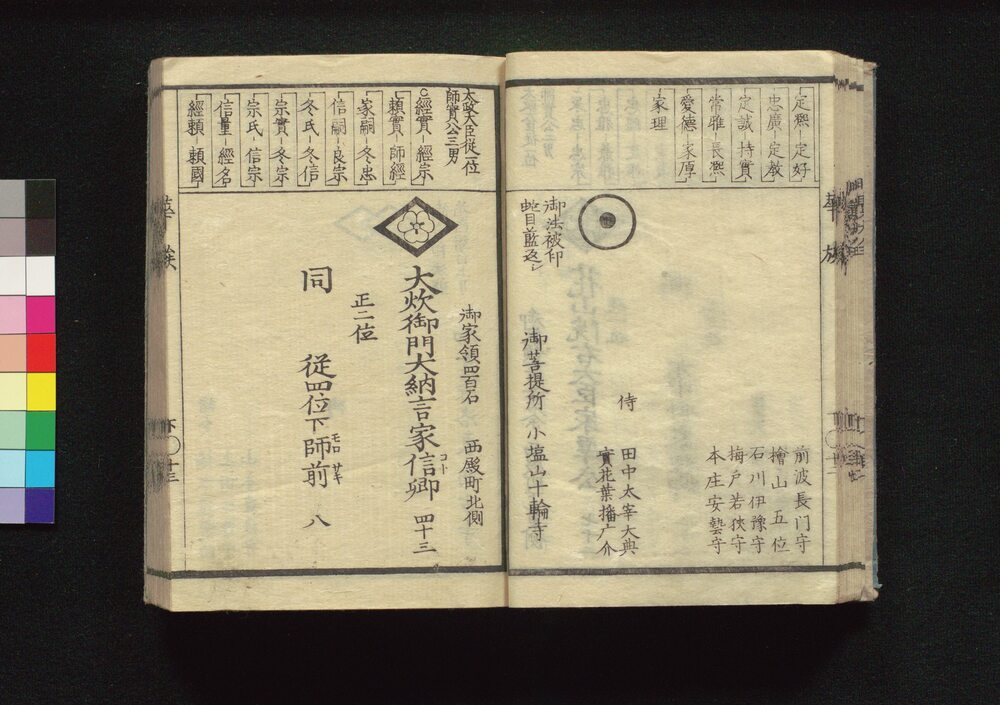 定熈-定好
忠廣-定教
定誠-持實
常雅-長熈
愛德-家厚
家理
前波長門守
檜山五位
石川伊豫守
梅戸若狹守
本庄安藝守
侍
田中太宰大典
實花葉播广介
御法被印
蛇目藍返シ
御菩提所 小塩山十輪寺
華族
太政大臣従一位
師實公三男
經實-經宗
頼實-師經
家嗣-冬忠
信嗣-良宗
冬氏-冬信
宗實-冬宗
宗氏-信宗
信量-經名
經頼-頼國
御家領四百石 西殿町北側
大炊御門大納言家信卿 四十三
コト
正二位
同 従四位下師前 八
モロ サキ
華族
下〇十三